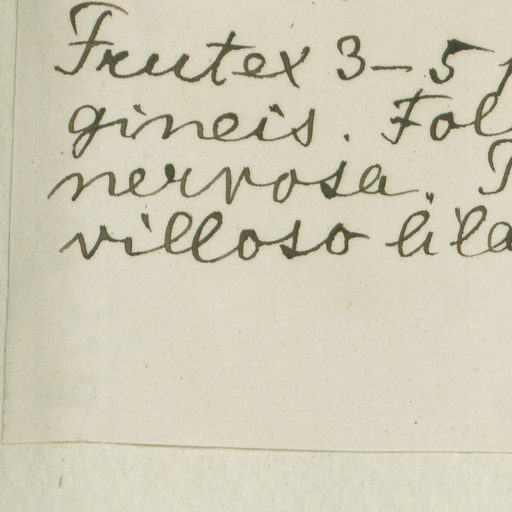 Frutex 3-5
gineis. Fol
nervosa.
villoso lila